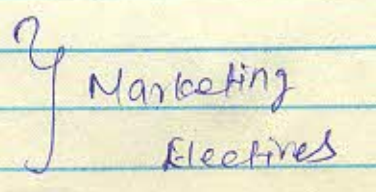 Marketing
Electives